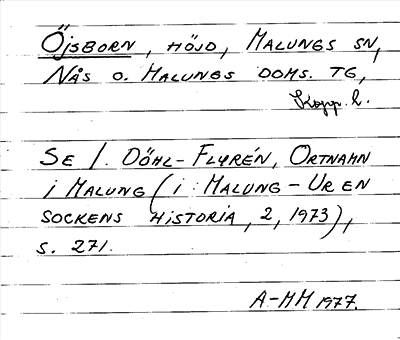 Öjsborn, höjd, Malungs sn,
Nås o. Malungs doms. tg,
Kopp. l.
Se I. Döhl-Flyrén, Ortnamn
i Malung (i Malung - Ur en
sockens historia, 2, 1973),
s. 271.
A-MM 1977.